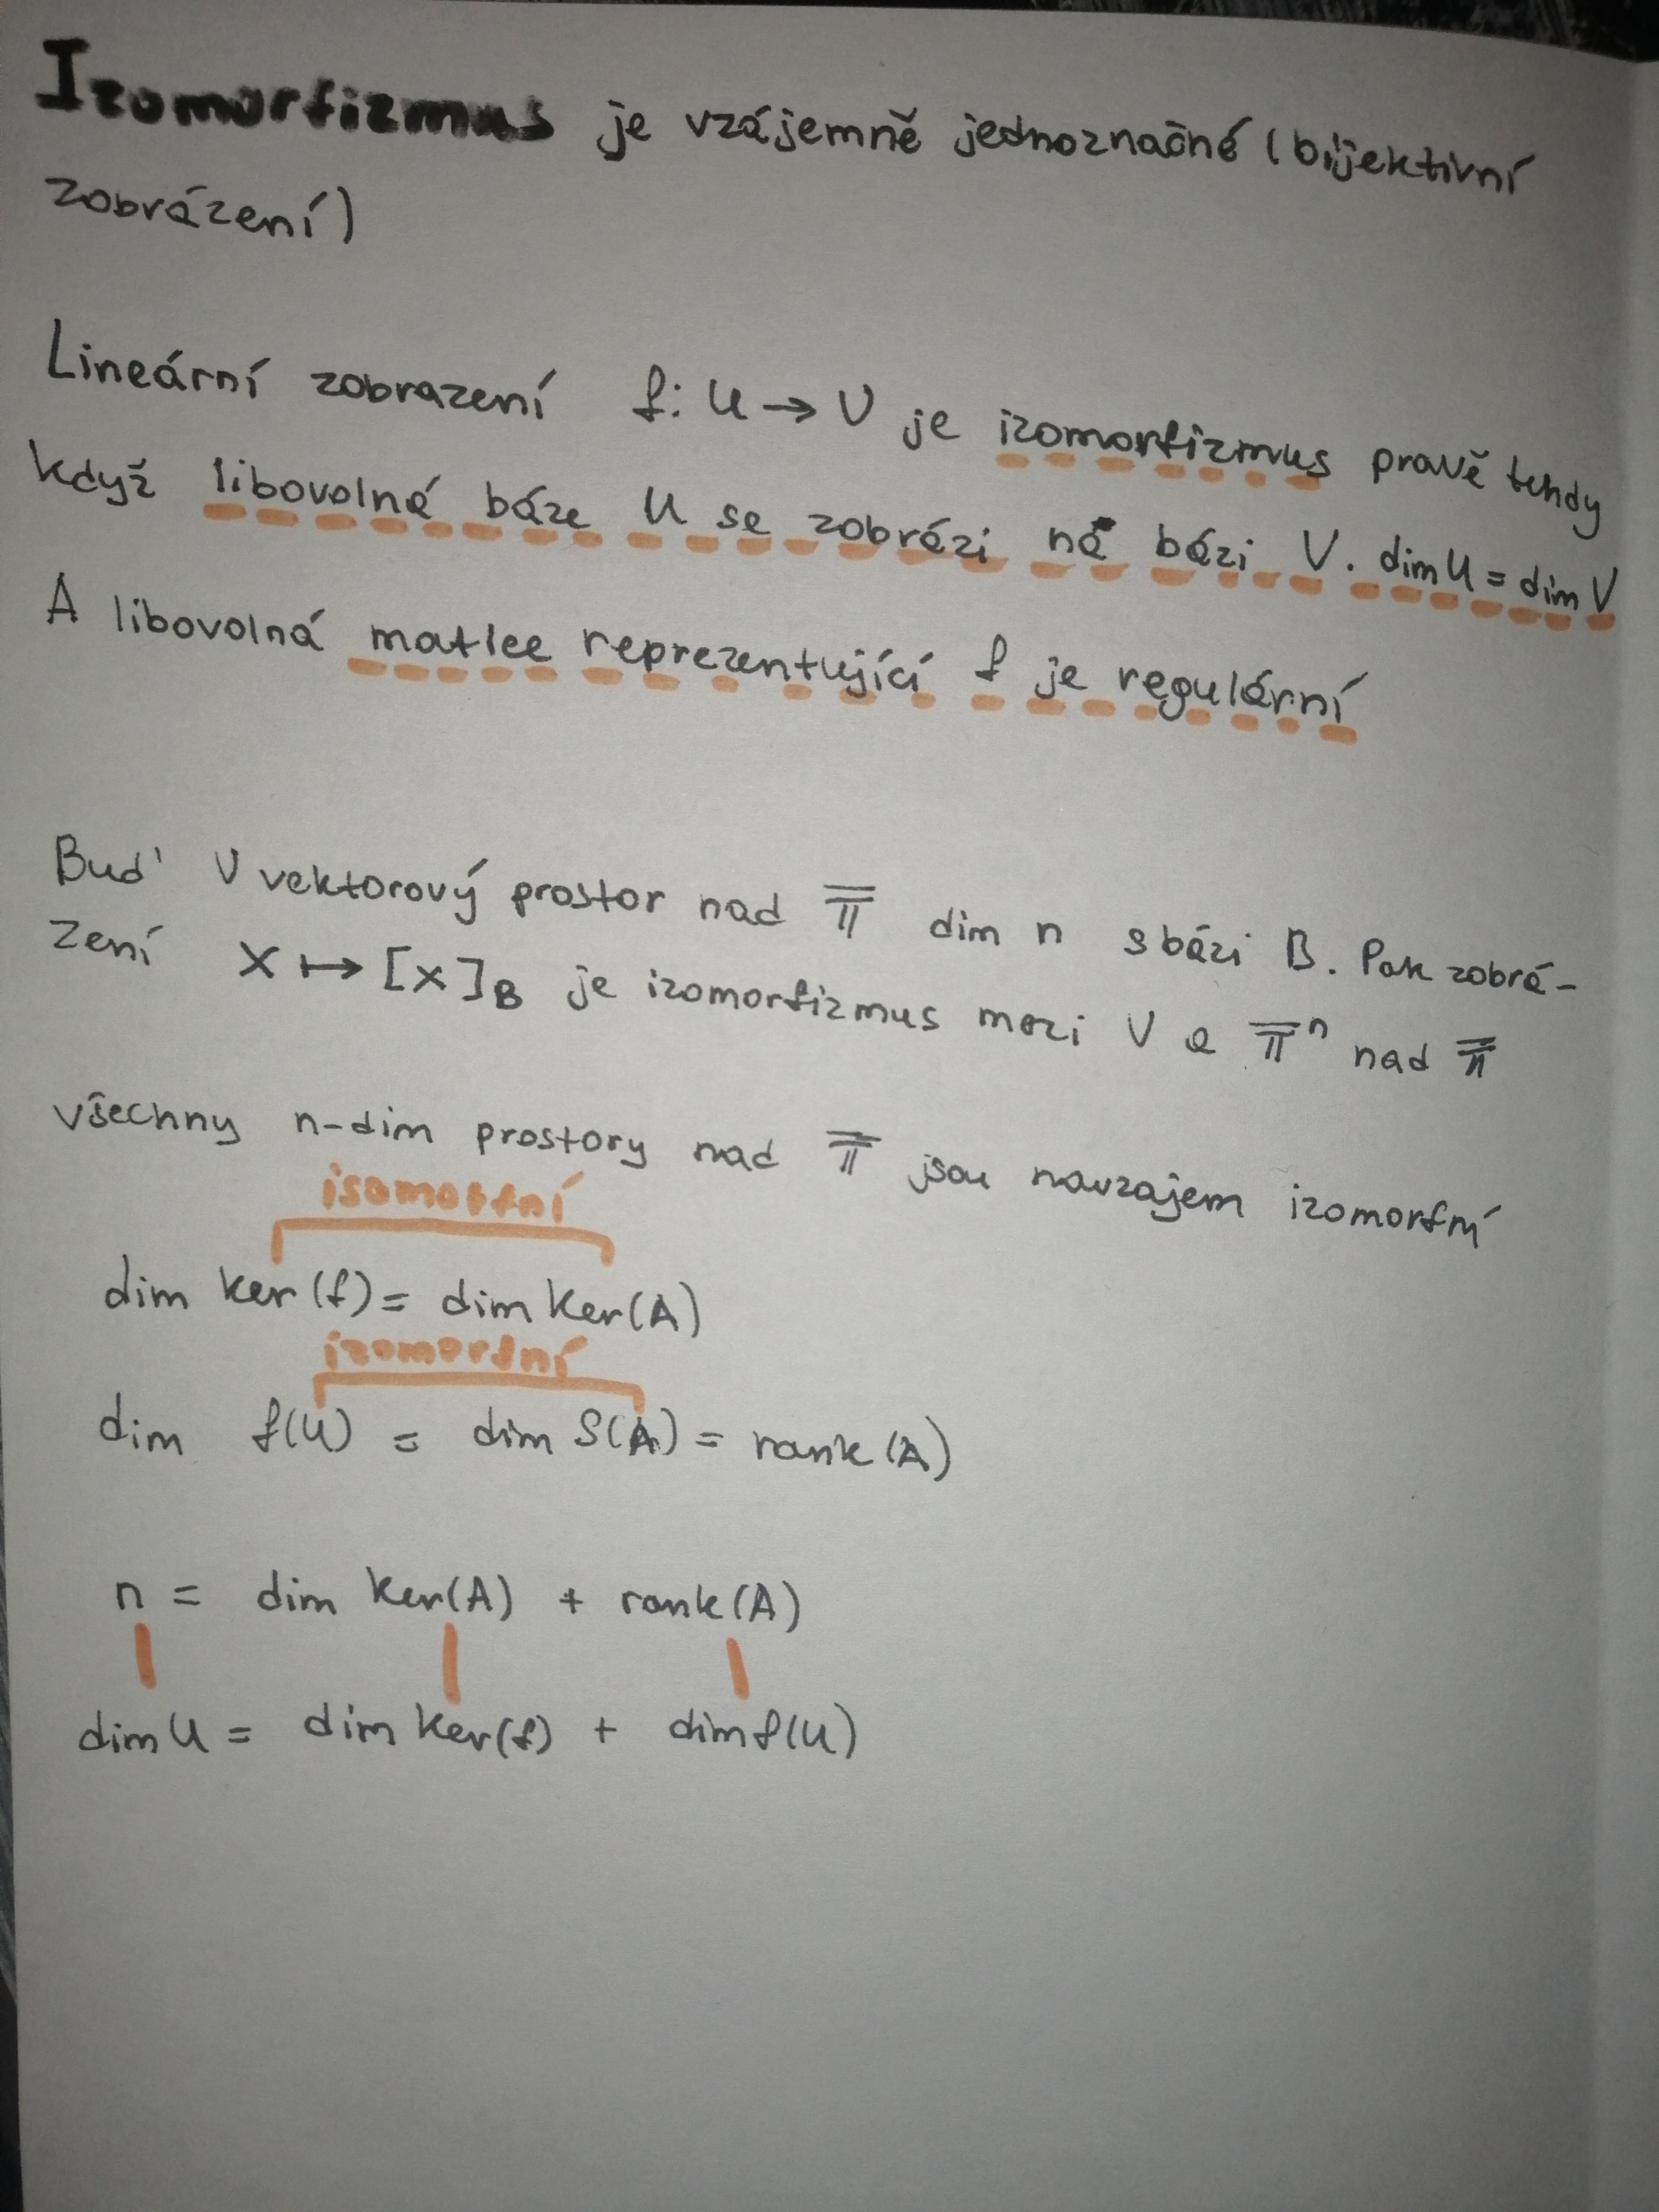 Izomorfizmus je vzájemně jednoznačné (bijektivní
zobrázení)
Lineární zobrazení f: U → V je izomorfizmus pravě tehdy
když libovolná báze U se zobrázi na bázi V. dim U = dim V
A libovolná matice reprezentující f je regulární
Buď V vektorový prostor nad 𝕋 dim n s bázi B. Pak zobrá-
zení x ↦ [x]_B je izomorfizmus mezi V a 𝕋ⁿ nad 𝕋
všechny n-dim prostory nad 𝕋 jsou navzajem izomorfní
isomorfní
dim ker(f) = dim ker(A)
izomorfní
dim f(U) = dim S(A) = rank(A)
n = dim ker(A) + rank(A)
dim U = dim ker(f) + dim f(U)